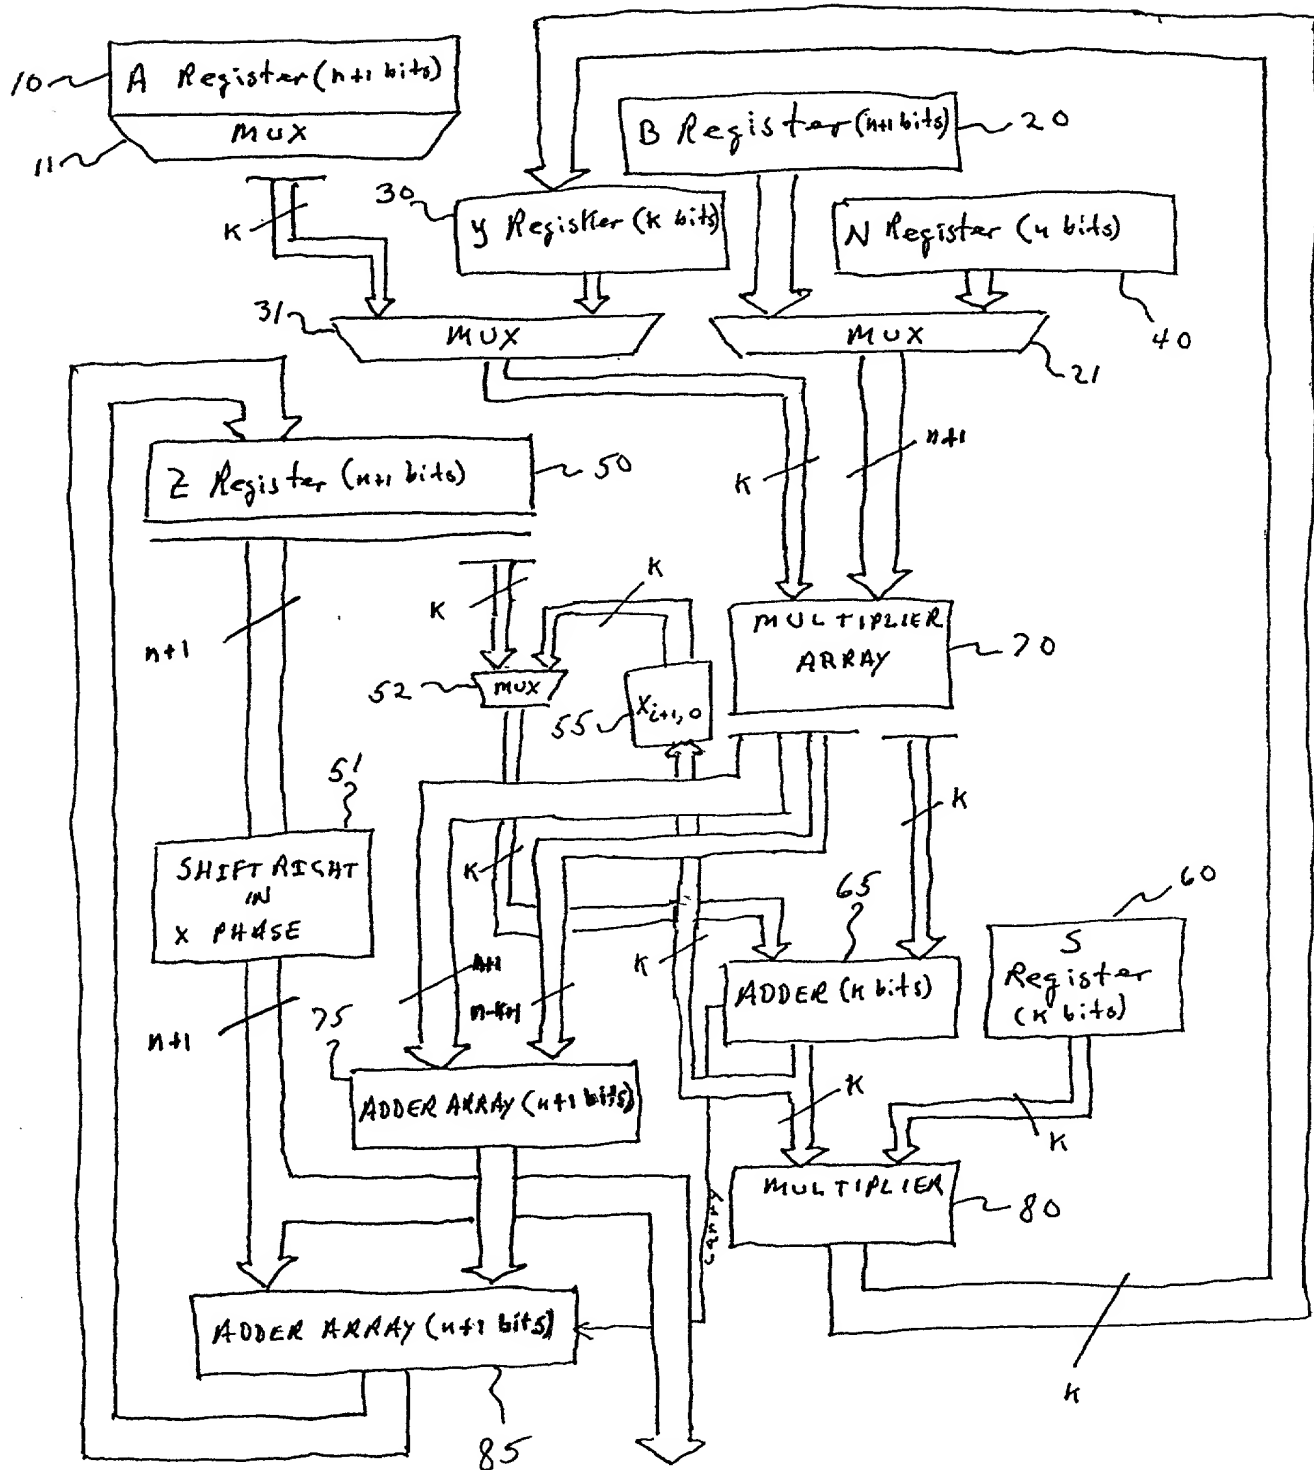 10
A Register (n+1 bits)
MUX
11
K
30
Y Register (K bits)
B Register (n+1 bits)
20
N Register (n bits)
40
31
MUX
MUX
21
Z Register (n+1 bits)
50
K
n+1
n+1
K
K
52
MUX
55
Xi+1,0
MULTIPLIER
ARRAY
70
K
51
SHIFT RIGHT
IN
X PHASE
K
65
60
n+1
n-k+1
K
ADDER (K bits)
S
Register
(K bits)
n+1
75
ADDER ARRAY (n+1 bits)
K
K
MULTIPLIER
80
Carry
ADDER ARRAY (n+1 bits)
85
K